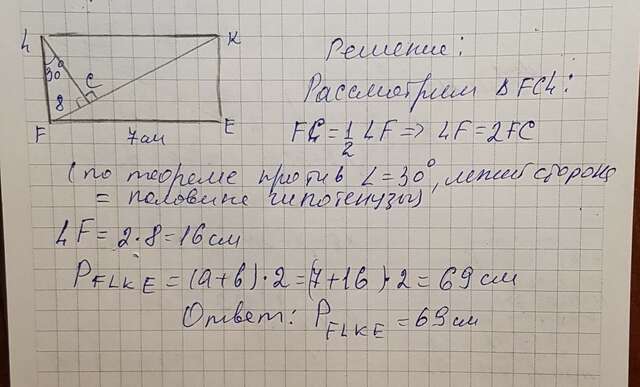 L K
30°
C
8
F 7см E
Решение:
Рассмотрим Δ FCL:
FC = 1/2 LF => LF = 2FC
(по теореме против ∠ = 30°, лежит сторона
= половине гипотенузы)
LF = 2 · 8 = 16 см
P FLKE = (a + b) · 2 = (7 + 16) · 2 = 69 см
Ответ: P FLKE = 69 см